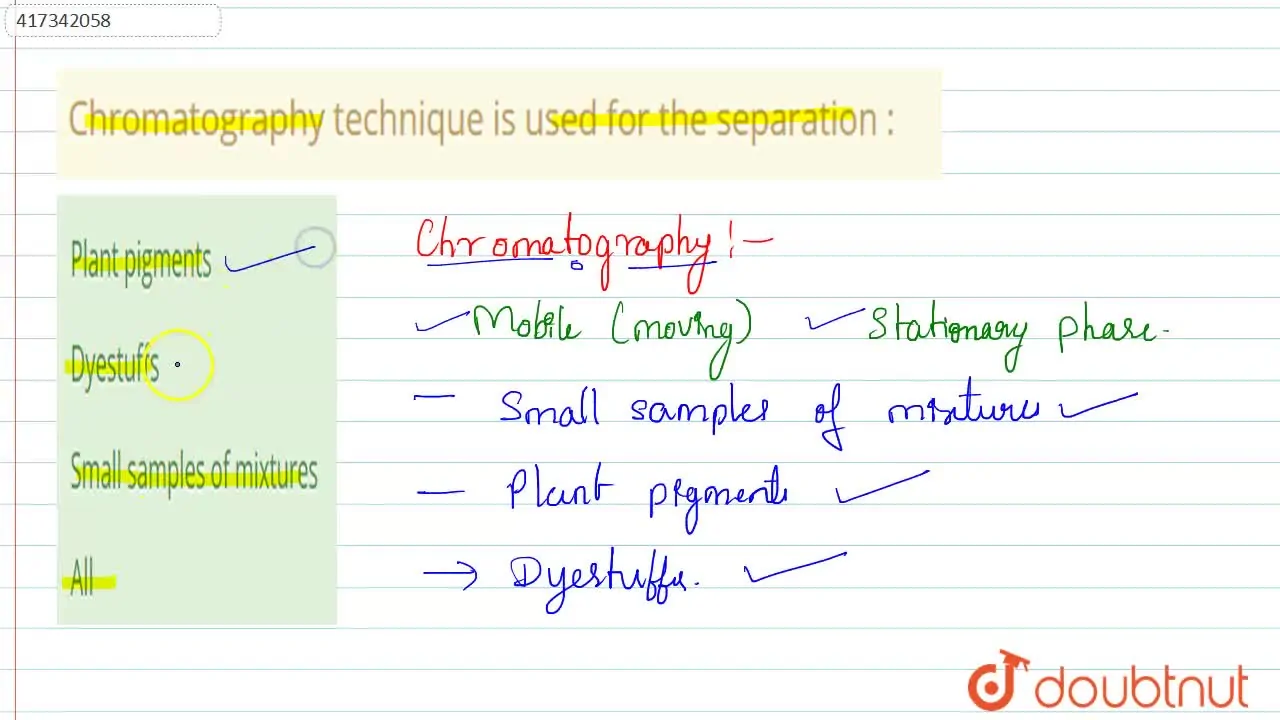 417342058
Chromatography technique is used for the separation :
Plant pigments
Dyestuffs
Small samples of mixtures
All
Chromatography :-
Mobile (moving) Stationary phase.
- Small samples of mixtures
- Plant pigments
→ Dyestuffs.
doubtnut